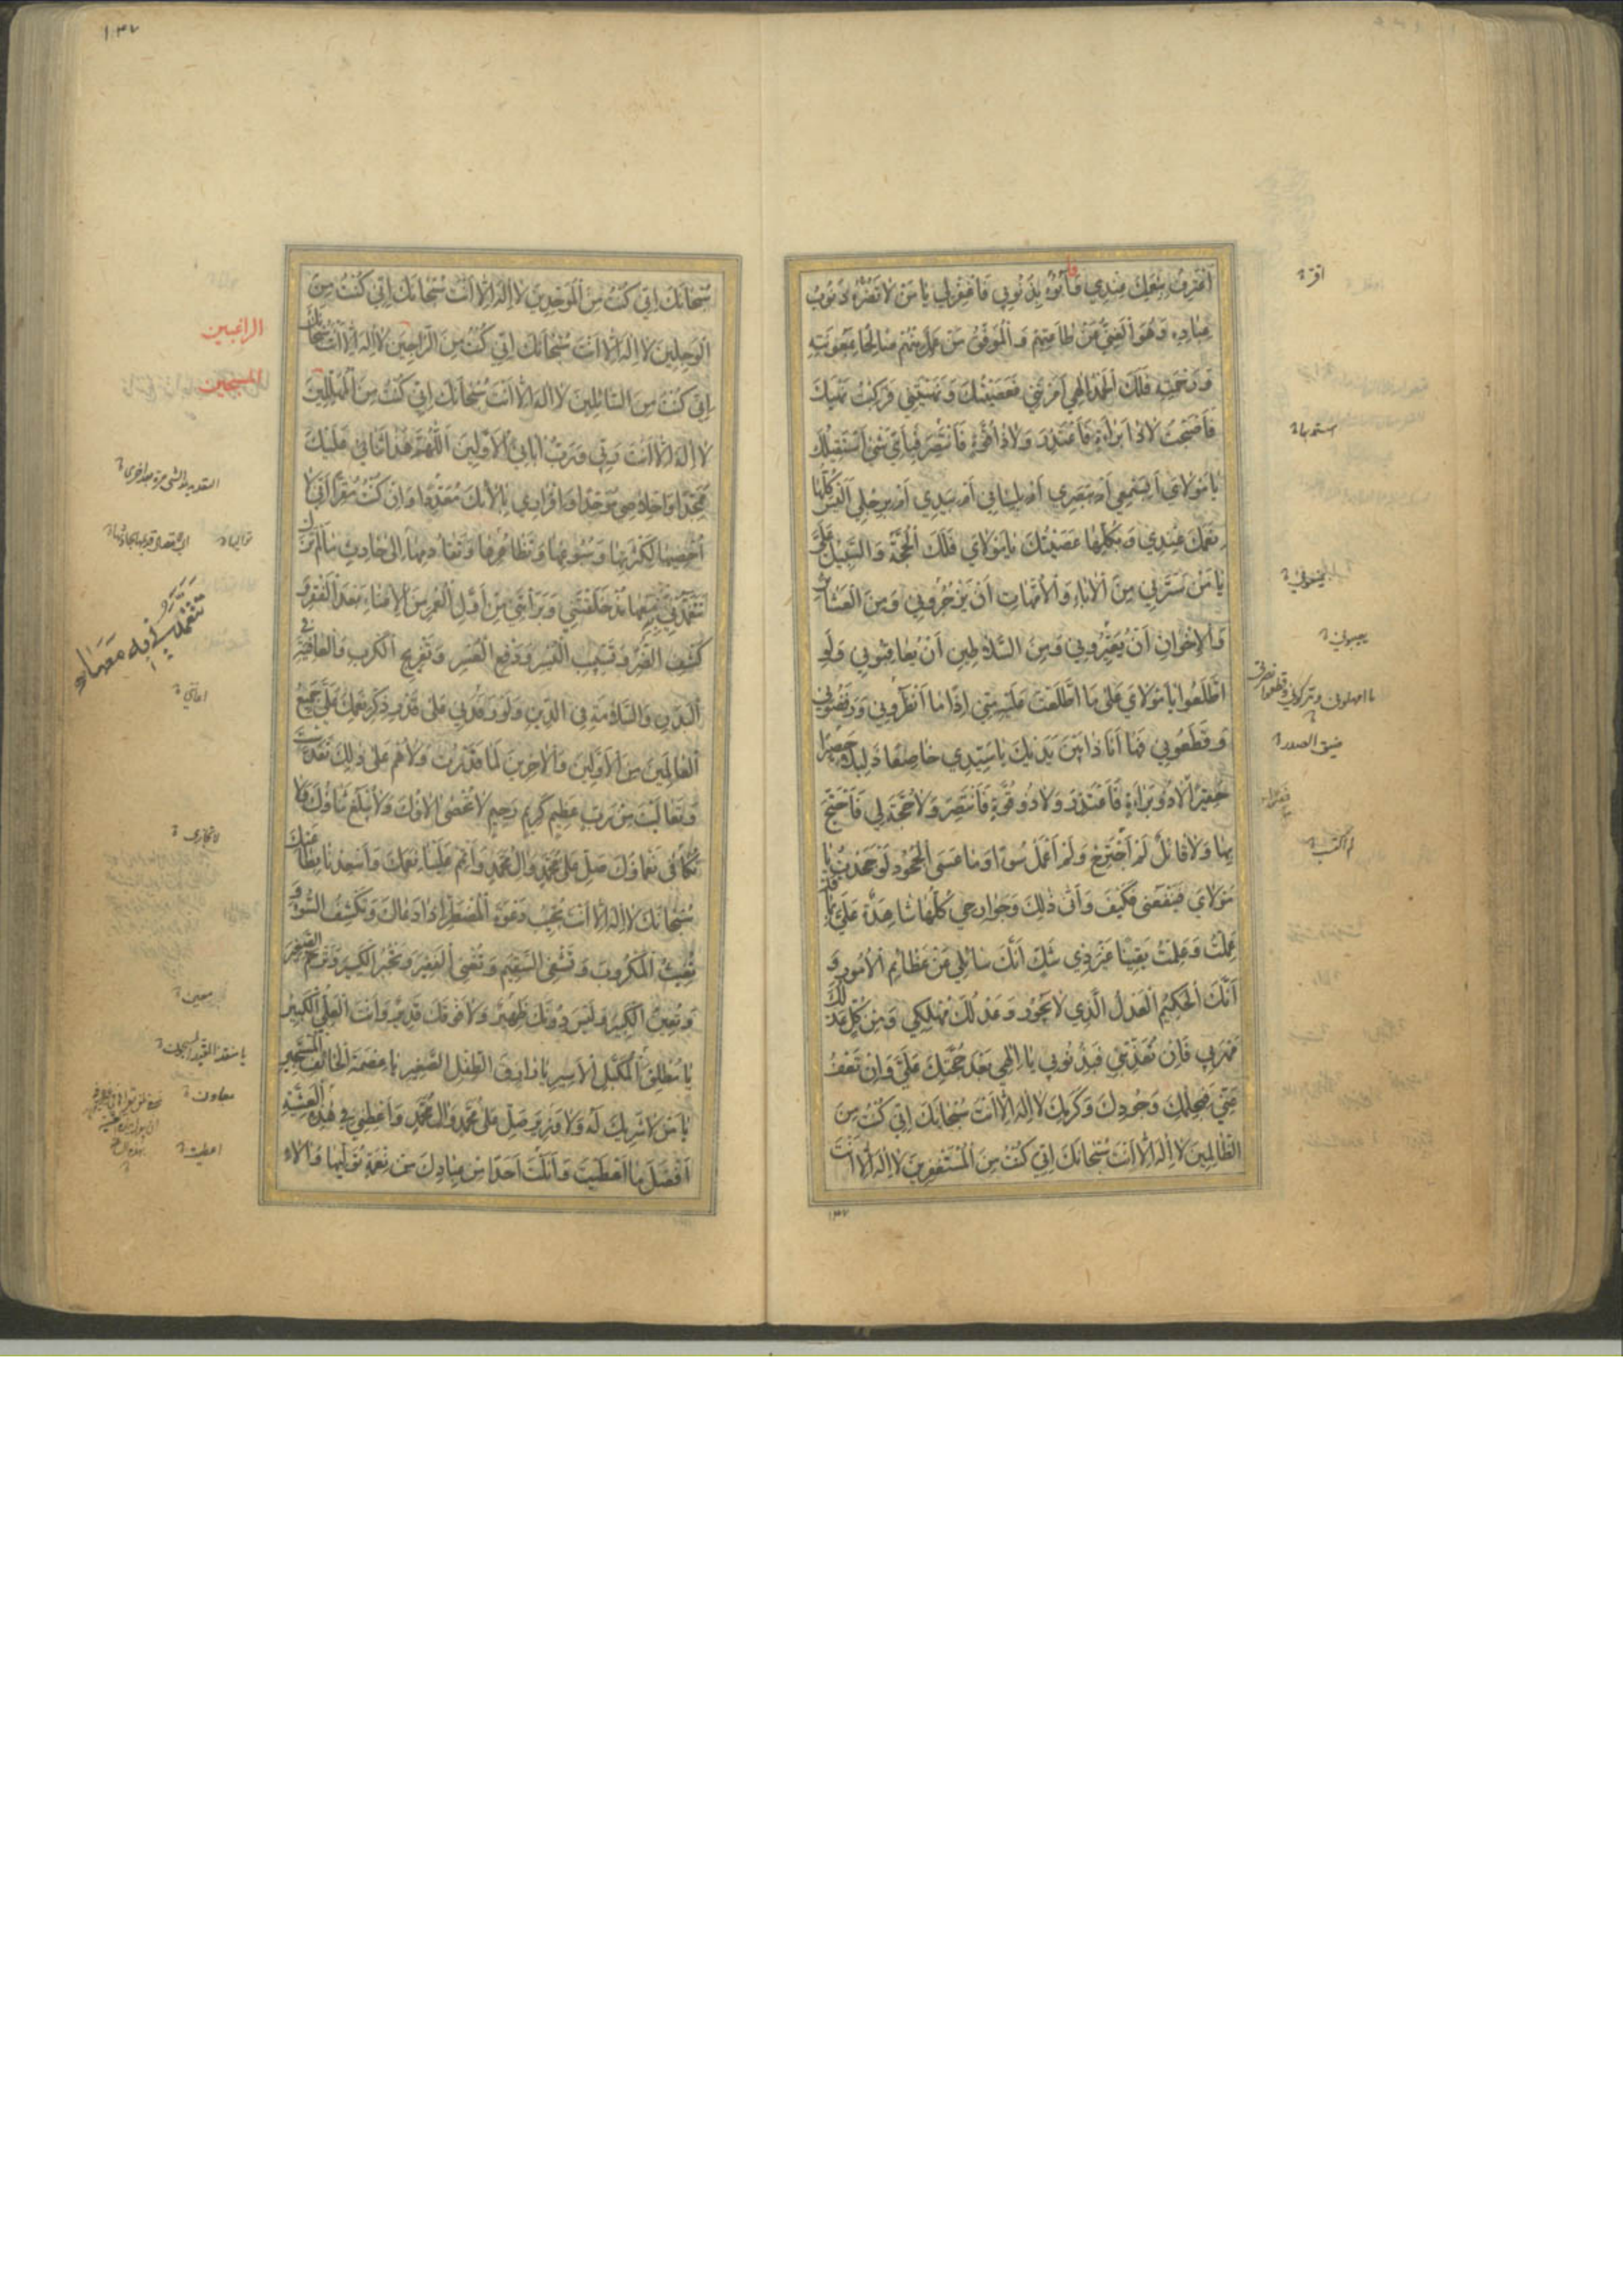 أَعْتَرِفُ بِنِعَمِكَ عِنْدِي فَأَبُوءُ بِذُنُوبِي فَاغْفِرْ لِي يَا مَنْ لَا تَضُرُّهُ ذُنُوبُ
عِبَادِهِ وَهُوَ الْغَنِيُّ عَنْ طَاعَتِهِمْ وَالْمُوَفِّقُ مَنْ عَمِلَ مِنْهُمْ صَالِحًا بِمَعُونَتِهِ
وَرَحْمَتِهِ فَلَكَ الْحَمْدُ إِلٰهِي أَمَرْتَنِي فَعَصَيْتُكَ وَنَهَيْتَنِي فَرَكِبْتُ نَهْيَكَ
فَأَصْبَحْتُ لَا ذَا بَرَاءَةٍ فَأَعْتَذِرَ وَلَا ذَا قُوَّةٍ فَأَنْتَصِرَ فَبِأَيِّ شَيْءٍ أَسْتَقْبِلُكَ
يَا مَوْلَايَ أَبِسَمْعِي أَمْ بِبَصَرِي أَمْ بِلِسَانِي أَمْ بِيَدِي أَمْ بِرِجْلِي أَلَيْسَ كُلُّهَا
نِعَمَكَ عِنْدِي وَبِكُلِّهَا عَصَيْتُكَ يَا مَوْلَايَ فَلَكَ الْحُجَّةُ وَالسَّبِيلُ عَلَيَّ
يَا مَنْ سَتَرَنِي مِنَ الْآبَاءِ وَالْأُمَّهَاتِ أَنْ يَزْجُرُونِي وَمِنَ الْعَشَائِرِ
وَالْإِخْوَانِ أَنْ يُعَيِّرُونِي وَمِنَ السَّلَاطِينِ أَنْ يُعَاقِبُونِي وَلَوِ
اطَّلَعُوا يَا مَوْلَايَ عَلَى مَا اطَّلَعْتَ عَلَيْهِ مِنِّي إِذًا مَا أَنْظَرُونِي وَرَفَضُونِي
وَقَطَعُونِي فَهَا أَنَا ذَا بَيْنَ يَدَيْكَ يَا سَيِّدِي خَاضِعًا ذَلِيلًا حَصِيرًا
حَقِيرًا لَا ذُو بَرَاءَةٍ فَأَعْتَذِرَ وَلَا ذُو قُوَّةٍ فَأَنْتَصِرَ وَلَا حُجَّةَ لِي فَأَحْتَجَّ
بِهَا وَلَا قَائِلٌ لَمْ أَجْتَرِحْ وَلَمْ أَعْمَلْ سُوءًا وَمَا عَسَى الْجُحُودُ لَوْ جَحَدْتُ يَا
مَوْلَايَ فَيَنْفَعُنِي فَكَيْفَ وَأَنَّى ذٰلِكَ وَجَوَارِحِي كُلُّهَا شَاهِدَةٌ عَلَيَّ بِمَا قَدْ
عَمِلْتُ وَعَلِمْتُ يَقِينًا غَيْرَ ذِي شَكٍّ أَنَّكَ سَائِلِي عَنْ عَظَائِمِ الْأُمُورِ وَ
أَنَّكَ الْحَكِيمُ الْعَدْلُ الَّذِي لَا يَجُورُ وَعَدْلُكَ مُهْلِكِي وَمِنْ كُلِّ عَدْلِكَ
مَهْرَبِي فَإِنْ تُعَذِّبْنِي فَبِذُنُوبِي يَا إِلٰهِي بَعْدَ حُجَّتِكَ عَلَيَّ وَإِنْ تَعْفُ
عَنِّي فَبِحِلْمِكَ وَجُودِكَ وَكَرَمِكَ لَا إِلٰهَ إِلَّا أَنْتَ سُبْحَانَكَ إِنِّي كُنْتُ مِنَ
الظَّالِمِينَ لَا إِلٰهَ إِلَّا أَنْتَ سُبْحَانَكَ إِنِّي كُنْتُ مِنَ الْمُسْتَغْفِرِينَ لَا إِلٰهَ إِلَّا أَنْتَ
يعيبوني
ضيق الصدر
لم أكتسب
١٣٧
سُبْحَانَكَ إِنِّي كُنْتُ مِنَ الْمُوَحِّدِينَ لَا إِلٰهَ إِلَّا أَنْتَ سُبْحَانَكَ إِنِّي كُنْتُ مِنَ
الْوَجِلِينَ لَا إِلٰهَ إِلَّا أَنْتَ سُبْحَانَكَ إِنِّي كُنْتُ مِنَ الرَّاجِينَ لَا إِلٰهَ إِلَّا أَنْتَ سُبْحَانَكَ
إِنِّي كُنْتُ مِنَ السَّائِلِينَ لَا إِلٰهَ إِلَّا أَنْتَ سُبْحَانَكَ إِنِّي كُنْتُ مِنَ الْمُهَلِّلِينَ
لَا إِلٰهَ إِلَّا أَنْتَ رَبِّي وَرَبُّ آبَائِيَ الْأَوَّلِينَ اللّٰهُمَّ هٰذَا ثَنَائِي عَلَيْكَ
مُمَجِّدًا وَإِخْلَاصِي مُوَحِّدًا وَإِقْرَارِي بِآلَائِكَ مُعَدِّدًا وَإِنْ كُنْتُ مُقِرًّا أَنِّي لَا
أُحْصِيهَا لِكَثْرَتِهَا وَسُبُوغِهَا وَتَظَاهُرِهَا وَتَقَادُمِهَا إِلَى حَادِثٍ مَا لَمْ تَزَلْ
تَتَغَمَّدُنِي بِهِ مَعَهَا مُذْ خَلَقْتَنِي وَبَرَأْتَنِي مِنْ أَوَّلِ الْعُمُرِ مِنَ الْإِغْنَاءِ بَعْدَ الْفَقْرِ وَ
كَشْفِ الضُّرِّ وَتَسْبِيبِ الْيُسْرِ وَدَفْعِ الْعُسْرِ وَتَفْرِيجِ الْكَرْبِ وَالْعَافِيَةِ فِي
الْبَدَنِ وَالسَّلَامَةِ فِي الدِّينِ وَلَوْ رَفَدَنِي عَلَى قَدْرِ ذِكْرِ نِعَمِكَ عَلَيَّ جَمِيعُ
الْعَالَمِينَ مِنَ الْأَوَّلِينَ وَالْآخِرِينَ لَمَا قَدَرْتُ وَلَا هُمْ عَلَى ذٰلِكَ تَقَدَّسْتَ
وَتَعَالَيْتَ مِنْ رَبٍّ عَظِيمٍ كَرِيمٍ رَحِيمٍ لَا تُحْصَى آلَاؤُكَ وَلَا يُبْلَغُ ثَنَاؤُكَ وَلَا
تُكَافَى نَعْمَاؤُكَ صَلِّ عَلَى مُحَمَّدٍ وَآلِ مُحَمَّدٍ وَأَتْمِمْ عَلَيْنَا نِعَمَكَ وَأَسْعِدْنَا بِطَاعَتِكَ
سُبْحَانَكَ لَا إِلٰهَ إِلَّا أَنْتَ تُجِيبُ دَعْوَةَ الْمُضْطَرِّ إِذَا دَعَاكَ وَتَكْشِفُ السُّوءَ وَ
تُغِيثُ الْمَكْرُوبَ وَتَشْفِي السَّقِيمَ وَتُغْنِي الْفَقِيرَ وَتَجْبُرُ الْكَسِيرَ وَتَرْحَمُ الصَّغِيرَ
وَتُعِينُ الْكَبِيرَ وَلَيْسَ دُونَكَ ظَهِيرٌ وَلَا فَوْقَكَ قَدِيرٌ وَأَنْتَ الْعَلِيُّ الْكَبِيرُ
يَا مُطْلِقَ الْمُكَبَّلِ الْأَسِيرِ يَا رَازِقَ الطِّفْلِ الصَّغِيرِ يَا عِصْمَةَ الْخَائِفِ الْمُسْتَجِيرِ
يَا مَنْ لَا شَرِيكَ لَهُ وَلَا وَزِيرَ صَلِّ عَلَى مُحَمَّدٍ وَآلِ مُحَمَّدٍ وَأَعْطِنِي فِي هٰذِهِ الْعَشِيَّةِ
أَفْضَلَ مَا أَعْطَيْتَ وَأَنَلْتَ أَحَدًا مِنْ عِبَادِكَ مِنْ نِعْمَةٍ تُوَلِّيهَا وَآلَاءٍ
الراغبين
المسبحين
أعانني
معين
معاون
أعطيت
١٣٧